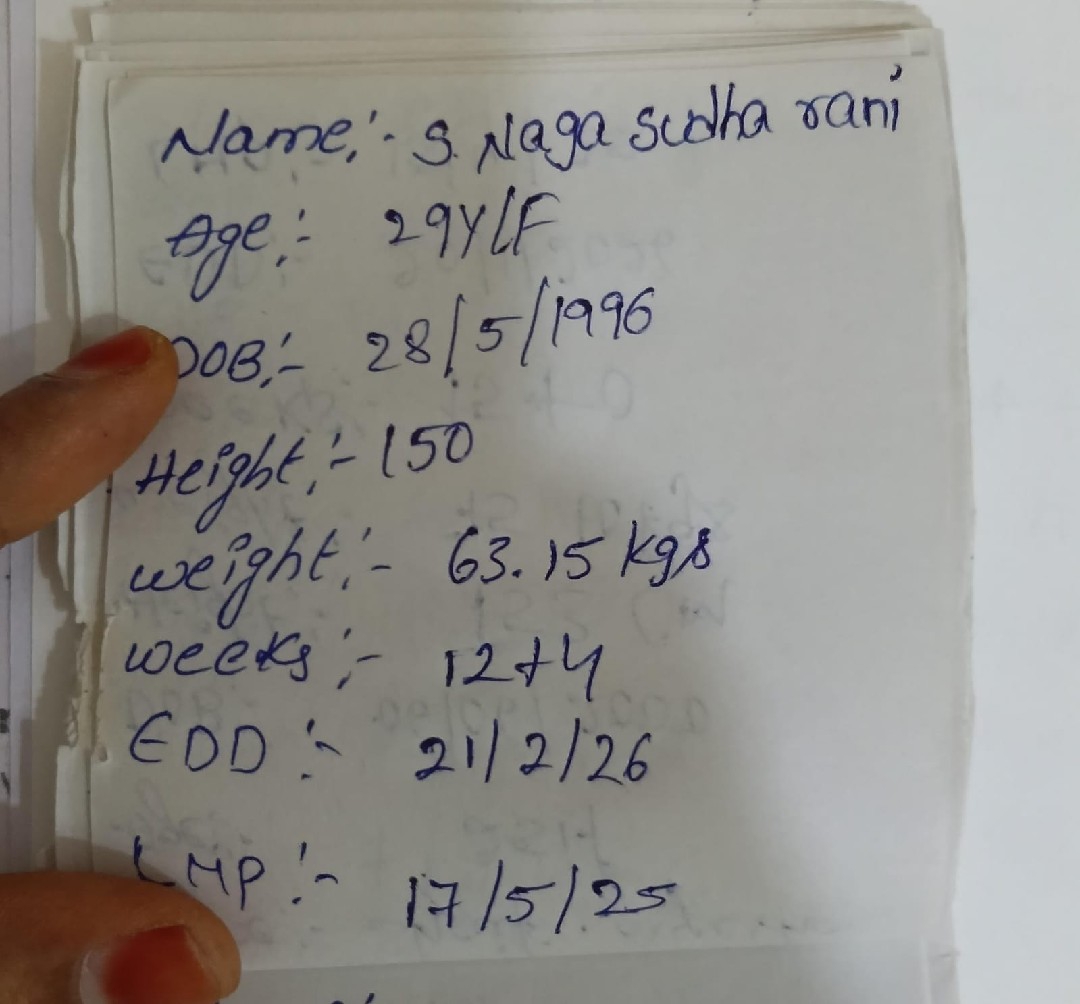 Name:- S. Naga Sudha rani
Age:- 29Y/F
DOB:- 28/5/1996
Height:- 150
weight:- 63.15 kgs
weeks:- 12+4
EDD:- 21/2/26
LMP:- 17/5/25